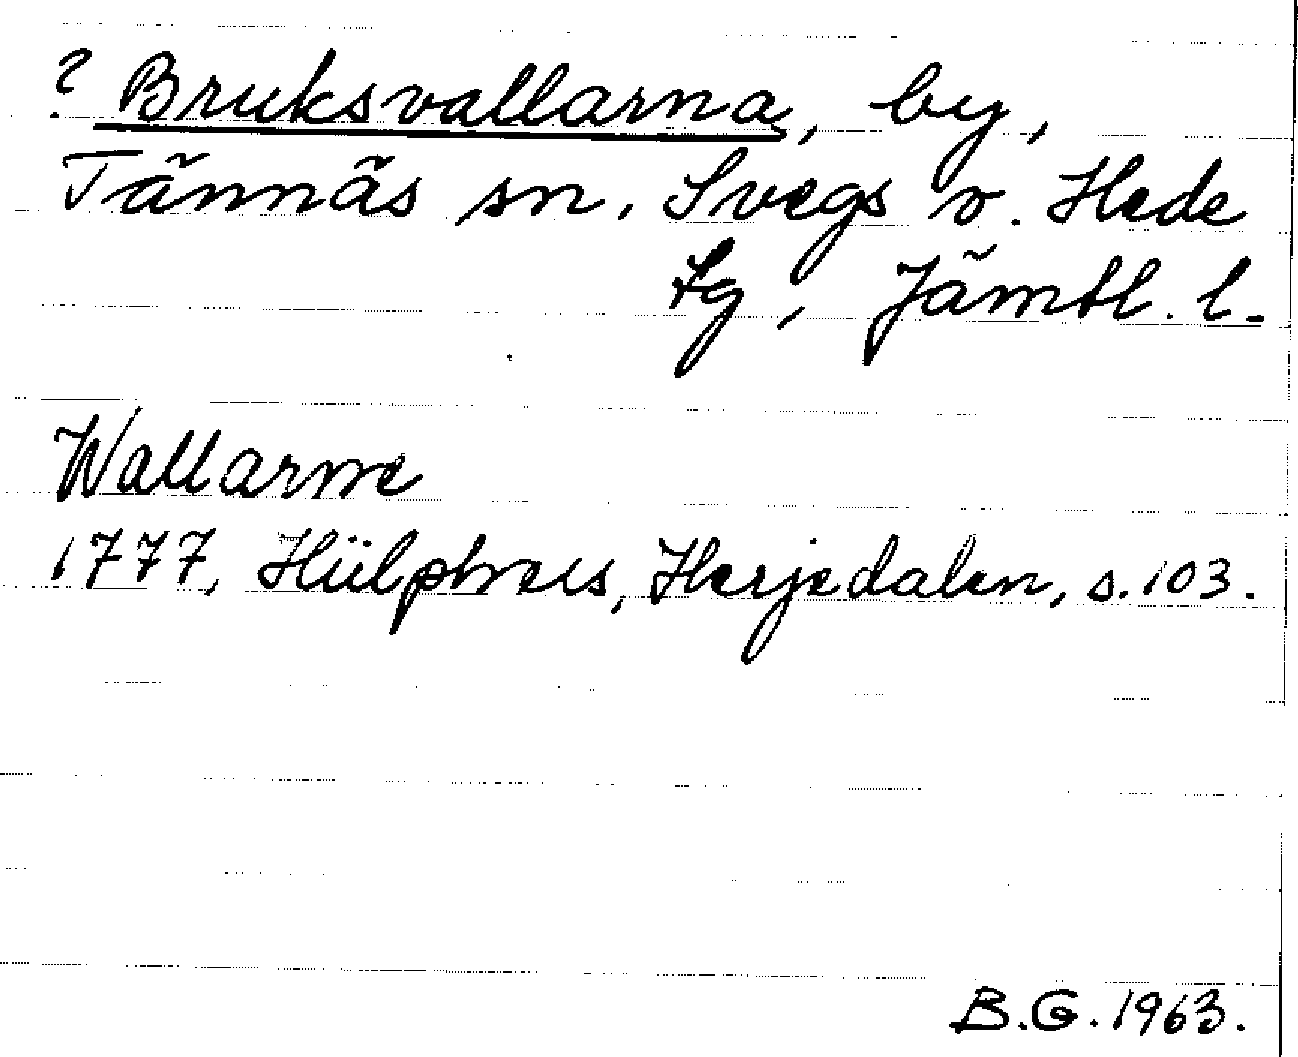 ? Bruksvallarna, by,
Tännäs sn. Svegs o. Hede
tg, Jämtl. l.
Wallarne
1777, Hülphers, Herjedalen, s. 103.
B.G. 1963.